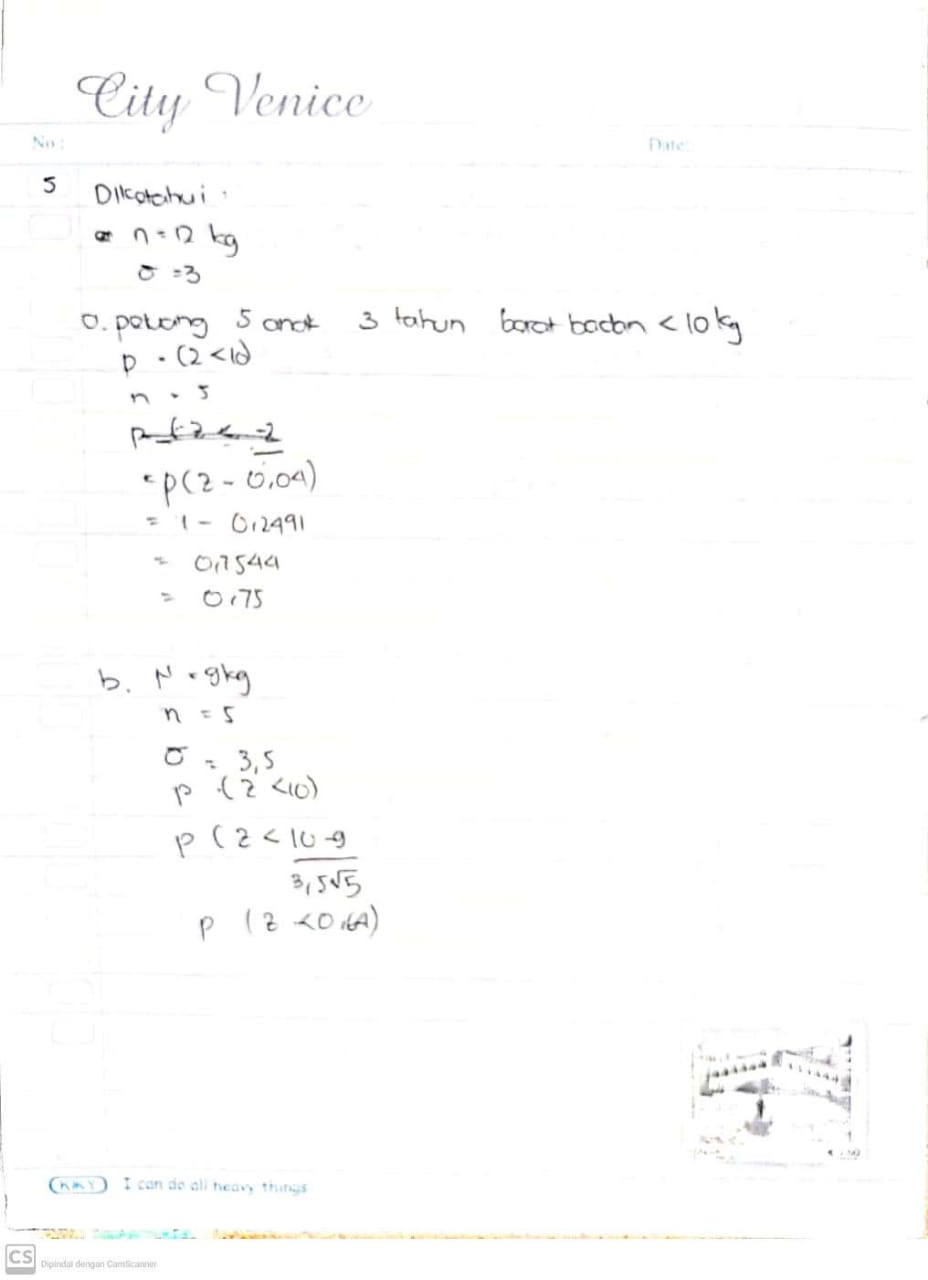 City Venice
No:
Date:
5 Diketahui :
n = 12 kg
σ = 3
a. peluang 5 anak 3 tahun berat badan < 10 kg
p . (2 < 10)
n = 5
p (-2 < -2
= p(2 - 0,04)
= 1 - 0,2491
= 0,7544
= 0,75
b. N = 9 kg
n = 5
σ = 3,5
p (Z < 10)
p (Z < 10-9
3,5√5
p (Z < 0,64)
I can do all heavy things
CS Dipindai dengan CamScanner